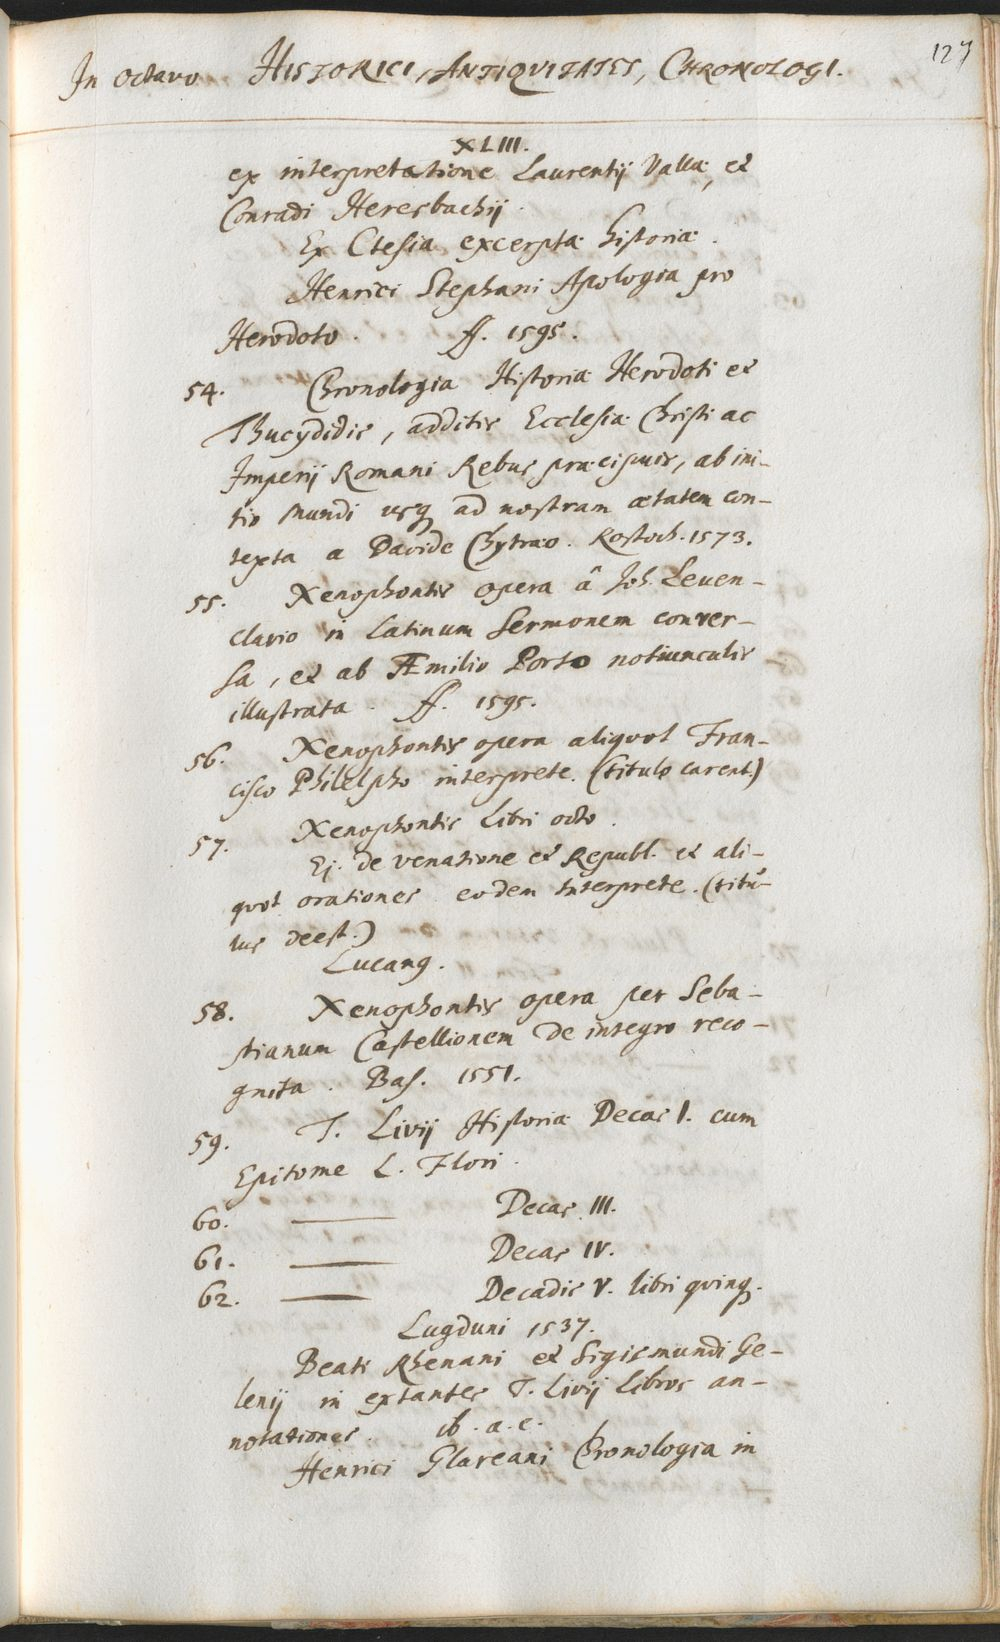 127
In octavo HISTORICI, ANTIQVITATES, CHRONOLOGI.
XLIII.
ex interpretatione Laurentij Vallæ, et
Conradi Heresbachij.
Ex Ctesia excerptæ historiæ.
Henrici Stephani Apologia pro
Herodoto. ff. 1595.
54. Chronologia Historiæ Herodoti et
Thucydidis, additis Ecclesiæ Christi ac
Imperij Romani Rebus præcipuis, ab ini-
tio Mundi usq ad nostram ætatem con-
texta a Davide Chytræo. Rostoch. 1573.
55. Xenophontis opera â Joh. Leuen-
clavio in Latinum Sermonem conver-
sa, et ab Æmilio Porto notiunculis
illustrata. ff. 1595.
56. Xenophontis opera aliquot Fran-
cisco Philelpho interprete. (titulo carent)
57. Xenophontis Libri octo.
Ej. de venatione et Republ. et ali-
quot orationes eodem Interprete. (titu-
lus deest.)
Lucang.
58. Xenophontis opera per Seba-
stianum Castellionem de integro reco-
gnita. Bas. 1551.
59. T. Livij Historiæ Decas I. cum
Epitome L. Flori.
60. —— Decas III.
61. —— Decas IV.
62. —— Decadis V. libri quinq.
Lugduni 1537.
Beati Rhenani et Sigismundi Ge-
lenij in extantes T. Livij Libros an-
notationes. ib. a. e.
Henrici Glareani Chronologia in